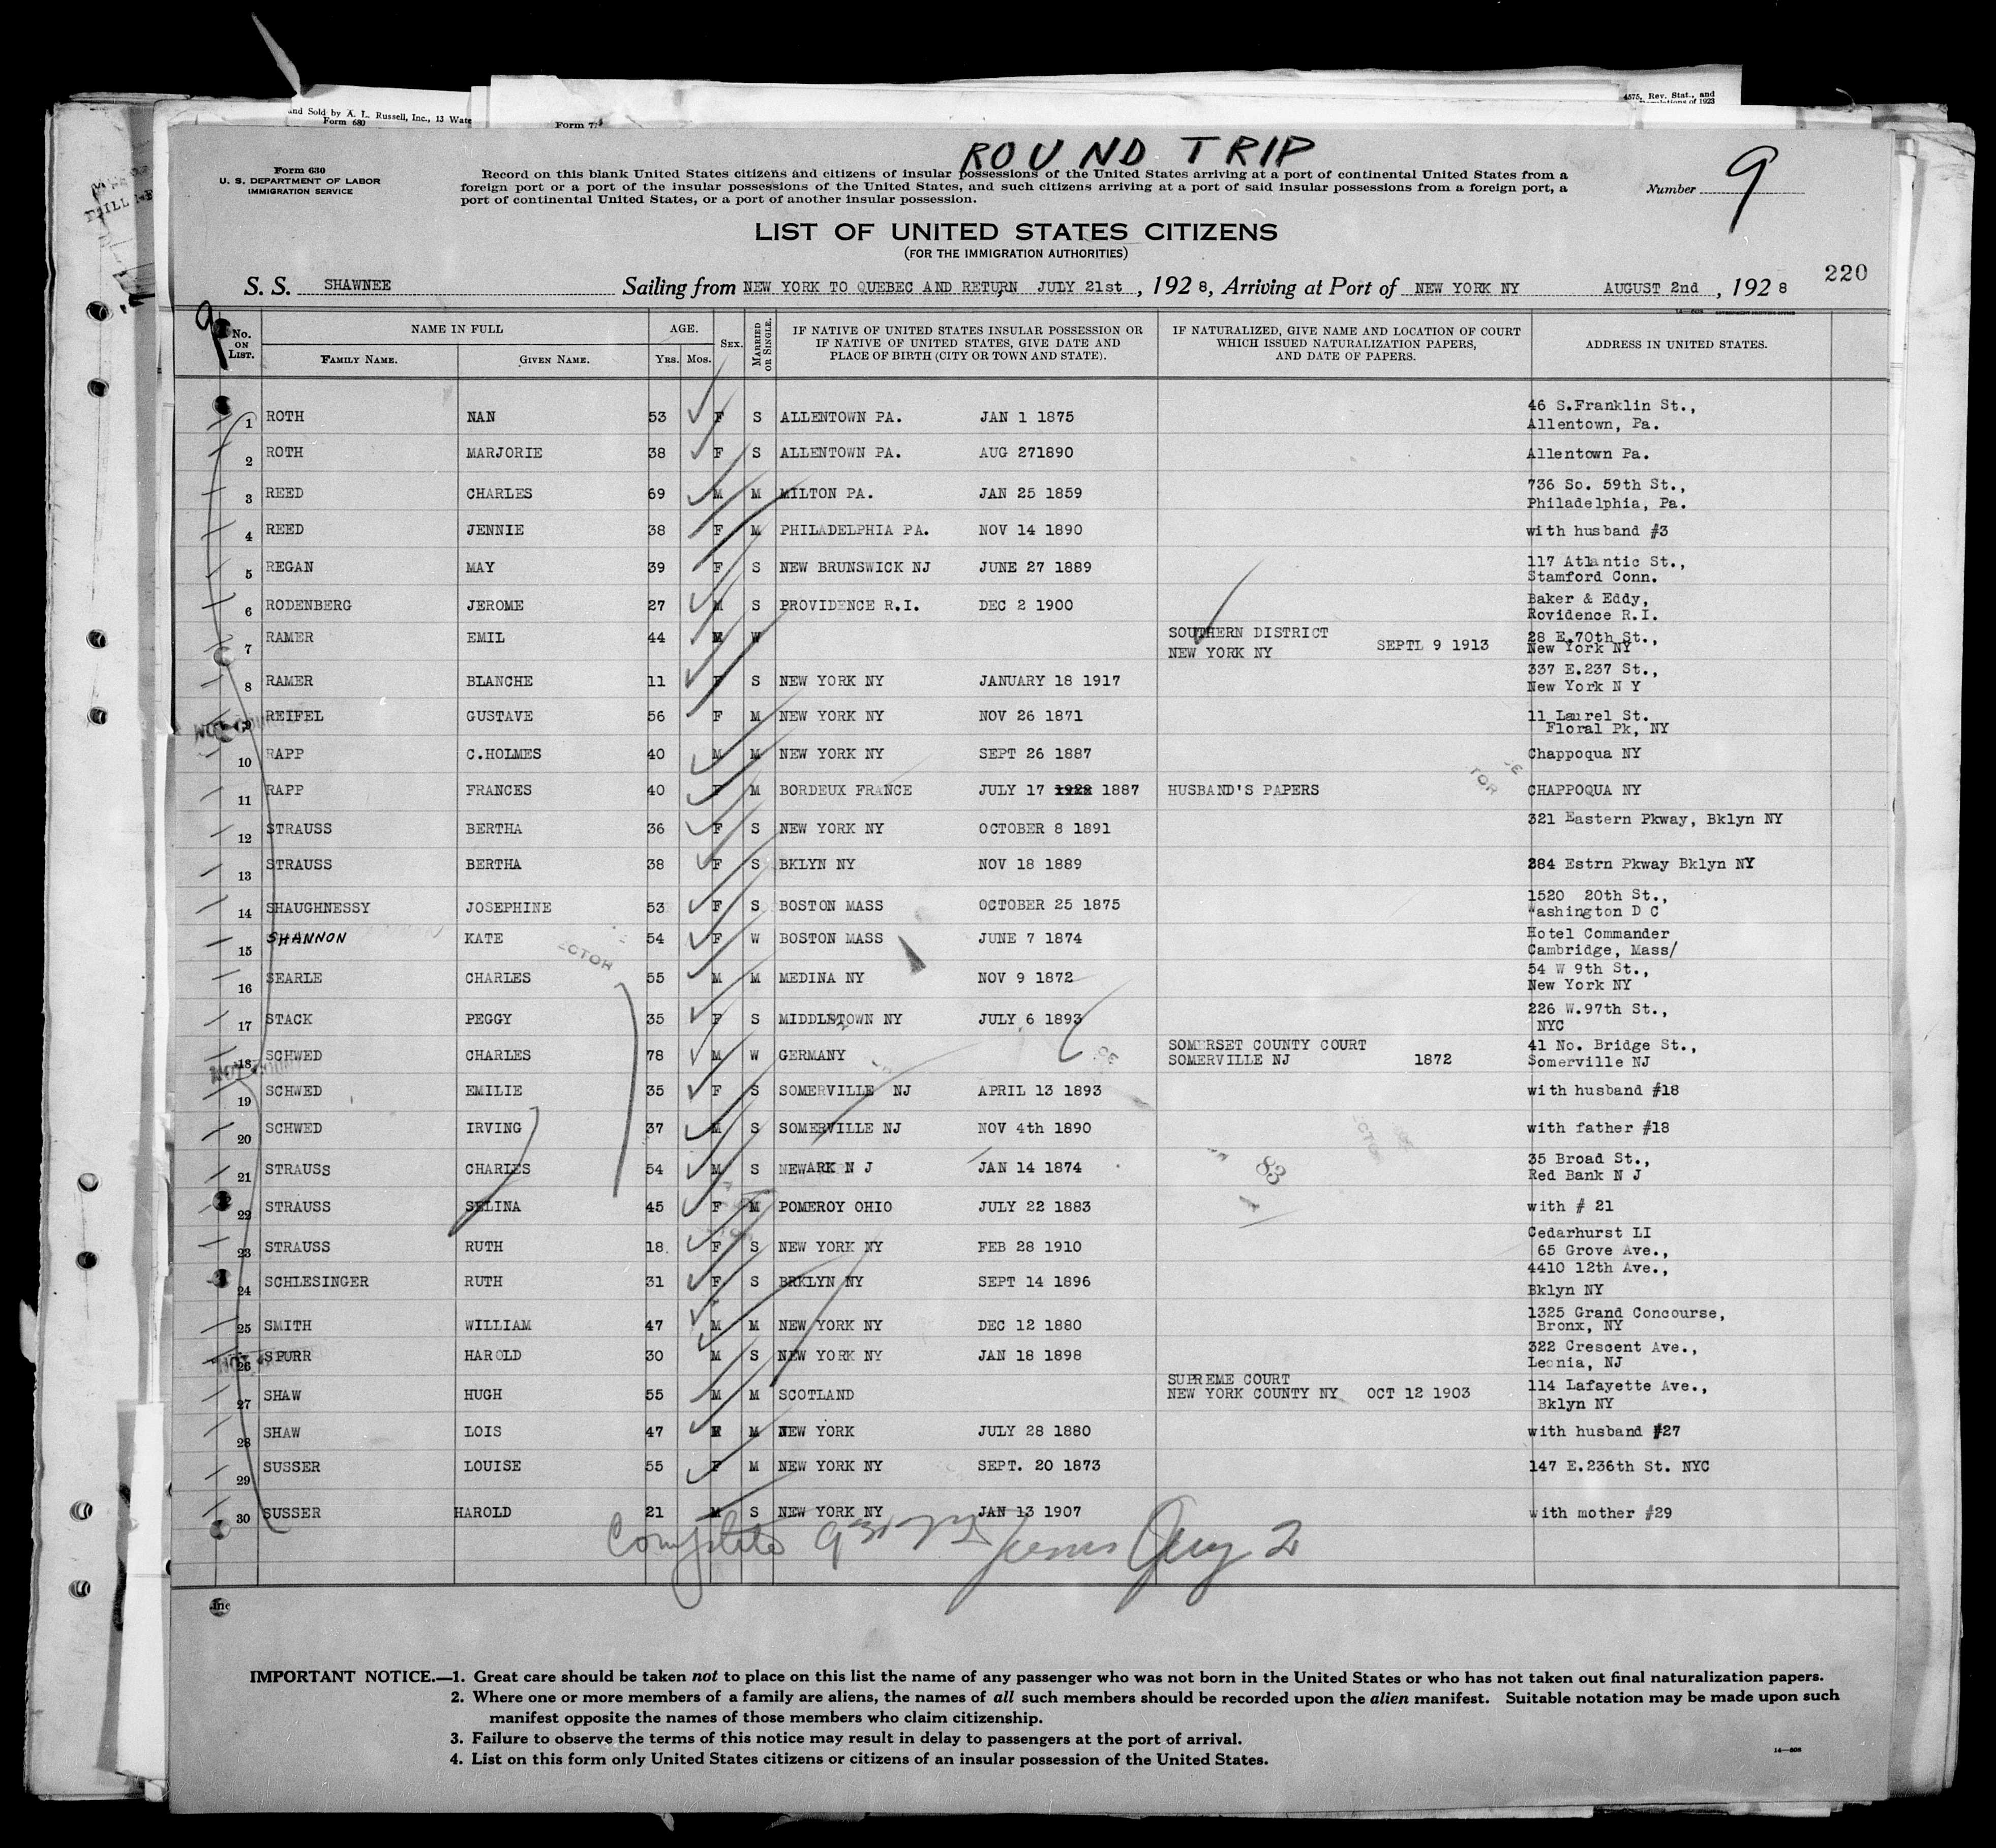 and Sold by A. L. Russell, Inc., 13 Wate
Form 680
4575, Rev. Stat., and
of 1923
ROUND TRIP
Form 630
U. S. DEPARTMENT OF LABOR
IMMIGRATION SERVICE
Record on this blank United States citizens and citizens of insular possessions of the United States arriving at a port of continental United States from a
foreign port or a port of the insular possessions of the United States, and such citizens arriving at a port of said insular possessions from a foreign port, a
port of continental United States, or a port of another insular possession.
Number 9
LIST OF UNITED STATES CITIZENS
(FOR THE IMMIGRATION AUTHORITIES)
220
S. S. SHAWNEE Sailing from NEW YORK TO QUEBEC AND RETURN JULY 21st, 1928, Arriving at Port of NEW YORK NY AUGUST 2nd, 1928
9
No. ON LIST. NAME IN FULL AGE. SEX. MARRIED OR SINGLE. IF NATIVE OF UNITED STATES INSULAR POSSESSION OR IF NATIVE OF UNITED STATES, GIVE DATE AND PLACE OF BIRTH (CITY OR TOWN AND STATE). IF NATURALIZED, GIVE NAME AND LOCATION OF COURT WHICH ISSUED NATURALIZATION PAPERS, AND DATE OF PAPERS. ADDRESS IN UNITED STATES.
FAMILY NAME. GIVEN NAME. YRS. MOS.
1 ROTH NAN 53 F S ALLENTOWN PA. JAN 1 1875 46 S.Franklin St., Allentown, Pa.
2 ROTH MARJORIE 38 F S ALLENTOWN PA. AUG 271890 Allentown Pa.
3 REED CHARLES 69 M M MILTON PA. JAN 25 1859 736 So. 59th St., Philadelphia, Pa.
4 REED JENNIE 38 F M PHILADELPHIA PA. NOV 14 1890 with husband #3
5 REGAN MAY 39 F S NEW BRUNSWICK NJ JUNE 27 1889 117 Atlantic St., Stamford Conn.
6 RODENBERG JEROME 27 M S PROVIDENCE R.I. DEC 2 1900 Baker & Eddy, Rovidence R.I.
7 RAMER EMIL 44 M W SOUTHERN DISTRICT NEW YORK NY SEPTL 9 1913 28 E.70th St., New York NY
8 RAMER BLANCHE 11 F S NEW YORK NY JANUARY 18 1917 337 E.237 St., New York N Y
9 REIFEL GUSTAVE 56 F M NEW YORK NY NOV 26 1871 11 Laurel St. Floral Pk, NY
10 RAPP C.HOLMES 40 M M NEW YORK NY SEPT 26 1887 Chappoqua NY
11 RAPP FRANCES 40 F M BORDEUX FRANCE JULY 17 1928 1887 HUSBAND'S PAPERS CHAPPOQUA NY
12 STRAUSS BERTHA 36 F S NEW YORK NY OCTOBER 8 1891 321 Eastern Pkway, Bklyn NY
13 STRAUSS BERTHA 38 F S BKLYN NY NOV 18 1889 284 Estrn Pkway Bklyn NY
14 SHAUGHNESSY JOSEPHINE 53 F S BOSTON MASS OCTOBER 25 1875 1520 20th St., Washington D C
15 SHANNON KATE 54 F W BOSTON MASS JUNE 7 1874 Hotel Commander Cambridge, Mass/
16 SEARLE CHARLES 55 M M MEDINA NY NOV 9 1872 54 W 9th St., New York NY
17 STACK PEGGY 35 F S MIDDLETOWN NY JULY 6 1893 226 W.97th St., NYC
18 SCHWED CHARLES 78 M W GERMANY SOMERSET COUNTY COURT SOMERVILLE NJ 1872 41 No. Bridge St., Somerville NJ
19 SCHWED EMILIE 35 F S SOMERVILLE NJ APRIL 13 1893 with husband #18
20 SCHWED IRVING 37 M S SOMERVILLE NJ NOV 4th 1890 with father #18
21 STRAUSS CHARLES 54 M S NEWARK N J JAN 14 1874 35 Broad St., Red Bank N J
22 STRAUSS SELINA 45 F M POMEROY OHIO JULY 22 1883 with # 21
23 STRAUSS RUTH 18 F S NEW YORK NY FEB 28 1910 Cedarhurst LI 65 Grove Ave.,
24 SCHLESINGER RUTH 31 F S BRKLYN NY SEPT 14 1896 4410 12th Ave., Bklyn NY
25 SMITH WILLIAM 47 M M NEW YORK NY DEC 12 1880 1325 Grand Concourse, Bronx, NY
26 SPURR HAROLD 30 M S NEW YORK NY JAN 18 1898 322 Crescent Ave., Leonia, NJ
27 SHAW HUGH 55 M M SCOTLAND SUPREME COURT NEW YORK COUNTY NY OCT 12 1903 114 Lafayette Ave., Bklyn NY
28 SHAW LOIS 47 F M NEW YORK JULY 28 1880 with husband #27
29 SUSSER LOUISE 55 F M NEW YORK NY SEPT. 20 1873 147 E.236th St. NYC
30 SUSSER HAROLD 21 M S NEW YORK NY JAN 13 1907 with mother #29
83
Complete Aug 2
IMPORTANT NOTICE.—1. Great care should be taken not to place on this list the name of any passenger who was not born in the United States or who has not taken out final naturalization papers.
2. Where one or more members of a family are aliens, the names of all such members should be recorded upon the alien manifest. Suitable notation may be made upon such
manifest opposite the names of those members who claim citizenship.
3. Failure to observe the terms of this notice may result in delay to passengers at the port of arrival.
4. List on this form only United States citizens or citizens of an insular possession of the United States.